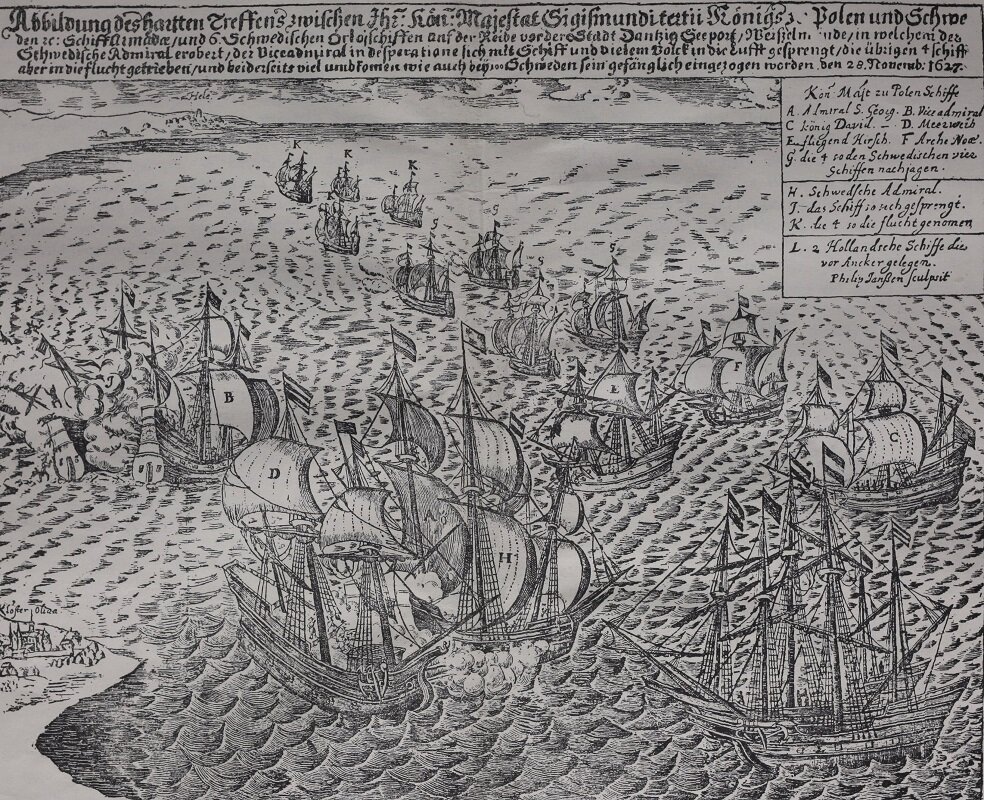 Abbildung deß hartten Treffens zwischen Ihr: Kön: Majestat Sigismundi tertii Königs z. Polen und Schwe
den ꝛc: Schiff Armadæ, und 6. Schwedischen Orlogschiffen auf der Reide vor der Stadt Dantzig Seeport, Weiselm nde, in welchem der
Schwedische Admiral erobert, der Viceadmiral in desperatione sich mit Schiff und vielem Volck in die Lufft gesprengt, die übrigen 4 schiff
aber in die flucht getrieben, und beiderseits viel umkomen wie auch bey Schweden sein gefänglich eingezogen worden. den 28. Novemb: 1627.
Kön Maſt zu Polen Schiffe
A. Admiral S. Georg. B. Viceadmiral
C könig David. - D. Meerweib
E. fliegend Hirsch. F Arche Noæ.
G. die 4 so den Schwedischen vier
Schiffen nachjagen.
H. Schwedsche Admiral.
J. das Schiff so sich gesprengt.
K. die 4 so die flucht genomen
L. 2 Hollandsche Schiffe die
vor Ancker gelegen.
Philip Janßen sculpsit
Hela
K
K
K
K
B
F
E
C
D
A
H
Kloster Oliva